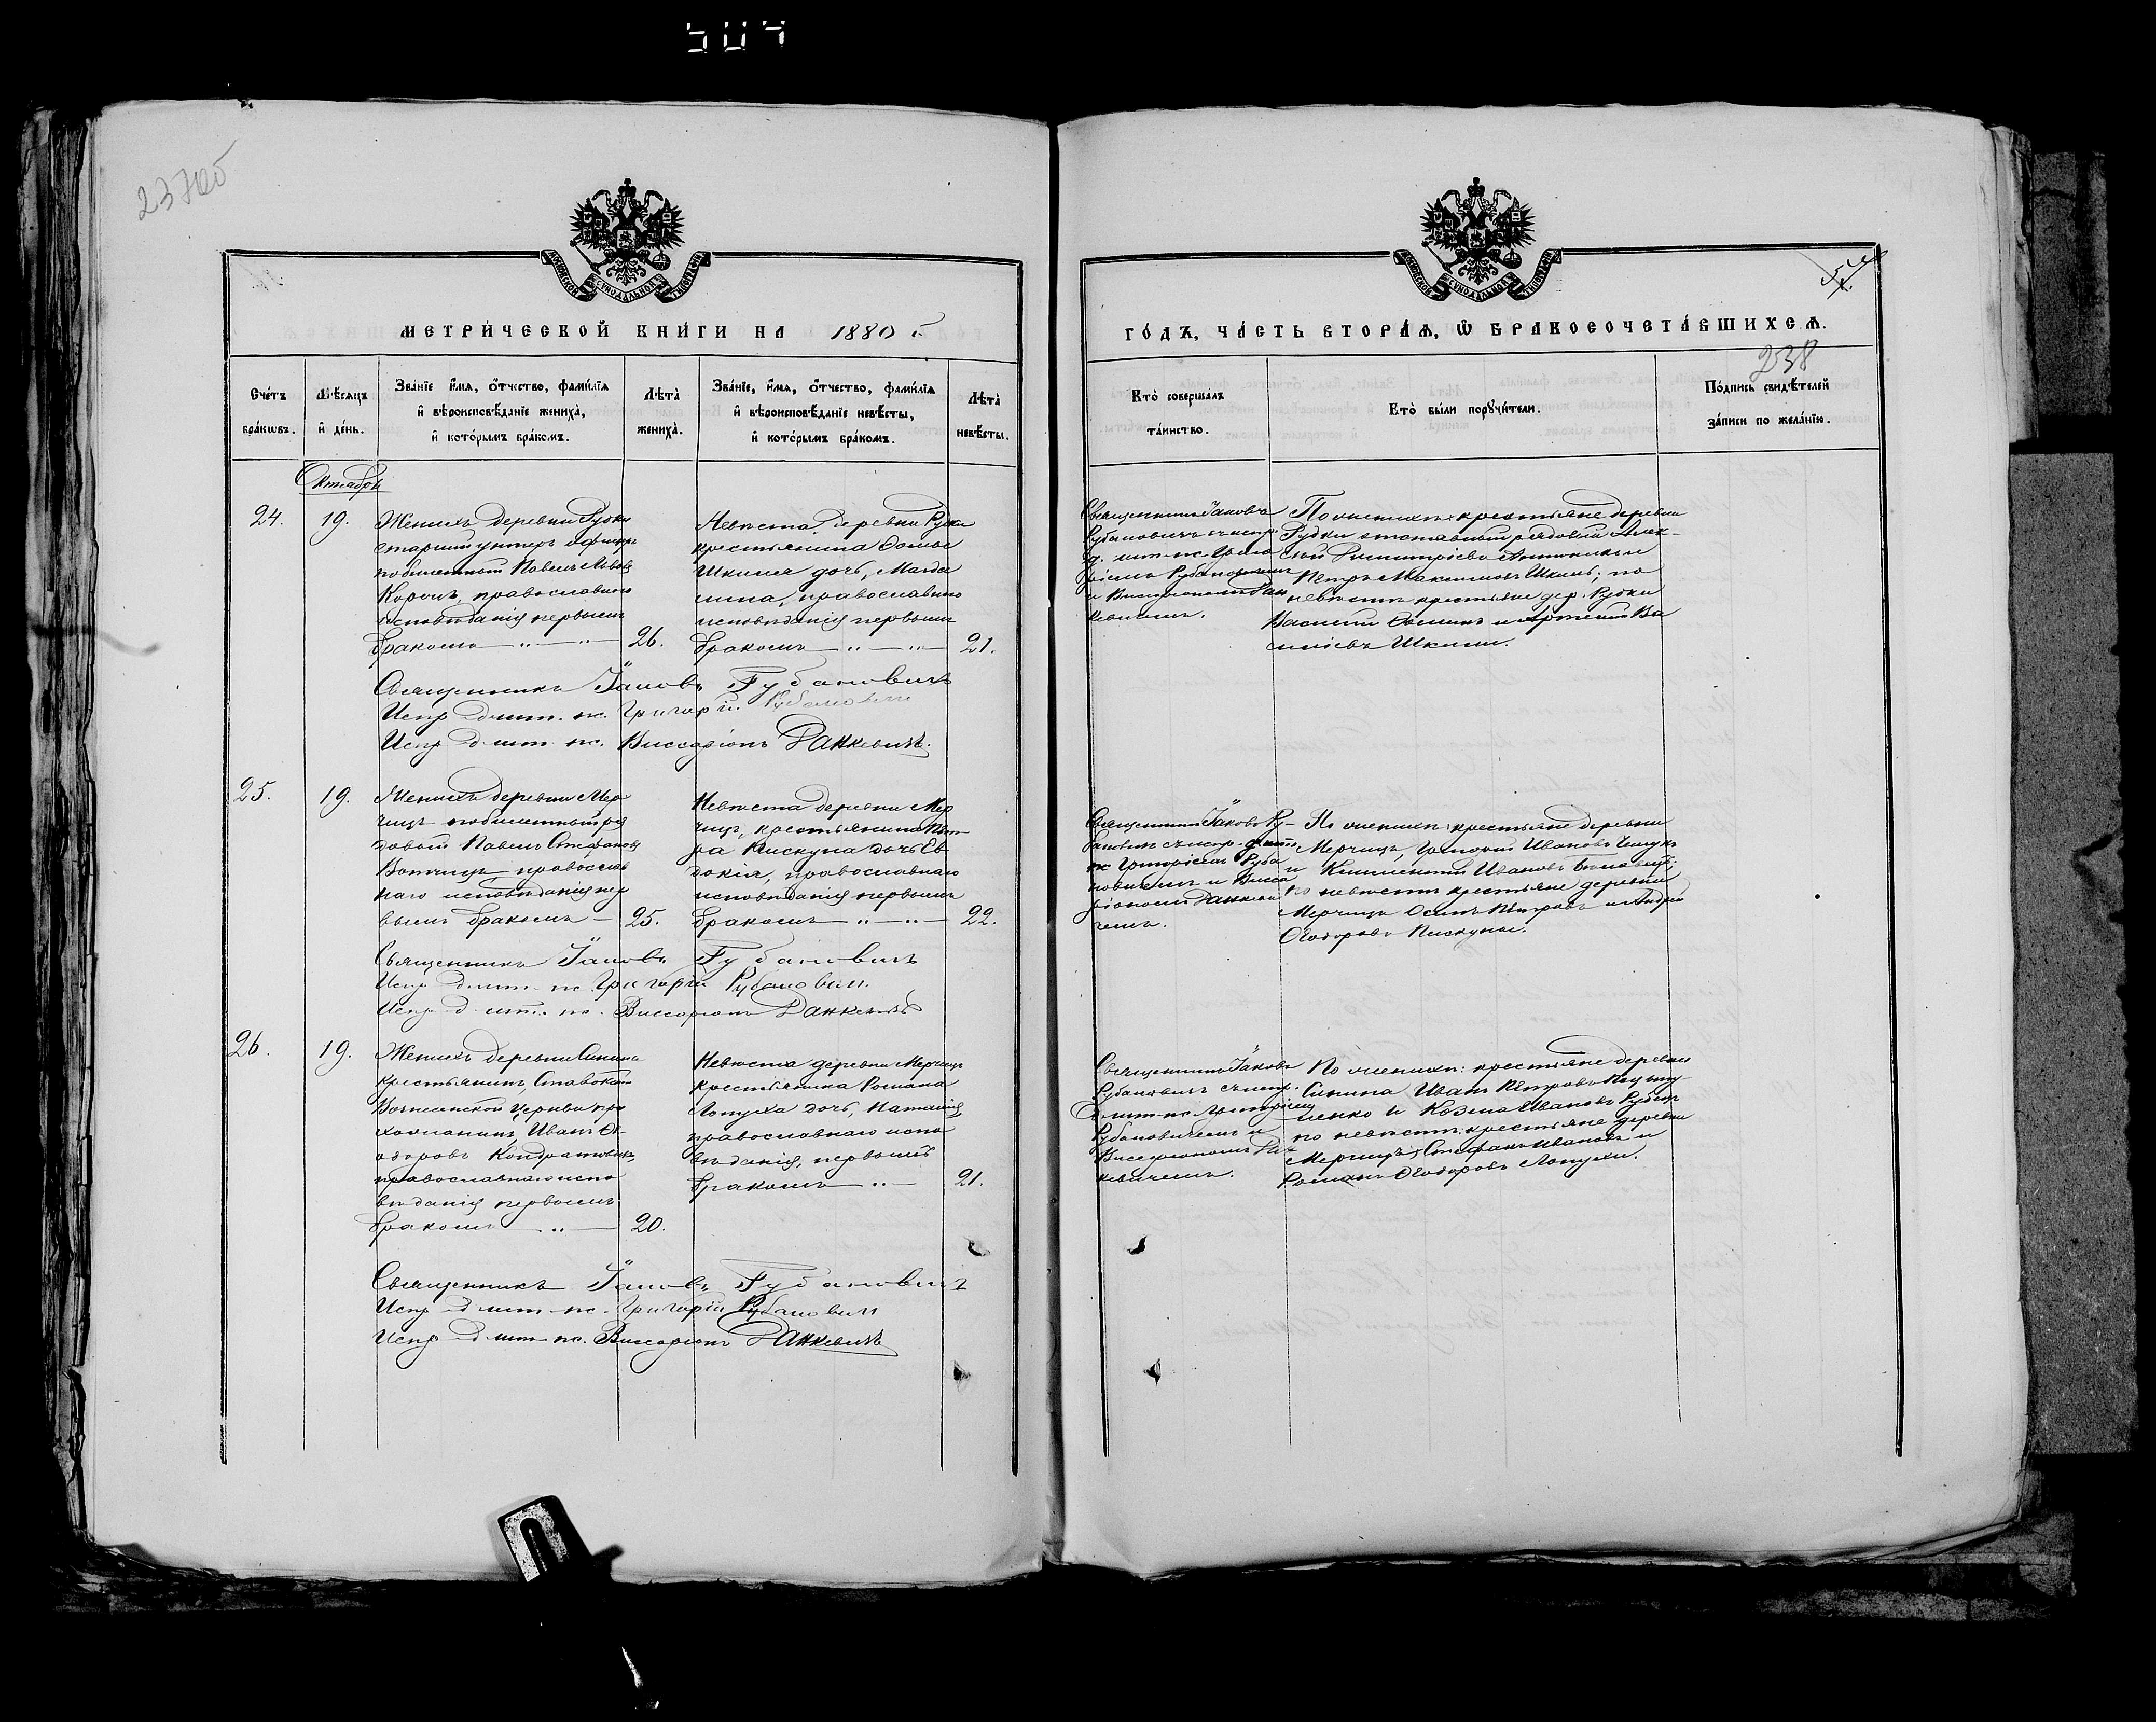 504
237об
МЕТРИЧЕСКОЙ КНИГИ НА 1880 г.
Счетъ браковъ.
Мѣсяцъ и день.
Званіе имя, отчество, фамилія
и вѣроисповѣданіе жениха,
и которымъ бракомъ.
Лѣта
жениха.
Званіе, имя, отчество, фамилія
и вѣроисповѣданіе невѣсты,
и которымъ бракомъ.
Лѣта
невѣсты.
Октябрь
24. 19.
Женихъ деревни Рудки
старшій унтеръ офицеръ
по билетный Павелъ Львовъ
Корочъ, православнаго
исповѣданія первымъ
бракомъ — „ — „ — 26.
Невѣста деревни Рудки
крестьянина Ѳомы
Шкиля дочь, Магда
лина, православнаго
исповѣданія первымъ
бракомъ — „ — „ — 21.
Священникъ Іаковъ Рубановичъ
Испр. д. шт. пс. Григорій Рубановичъ
Испр. д. шт. пс. Виссаріонъ Данкевичъ.
25. 19.
Женихъ деревни Мер
чицъ по билетный ря
довой Павелъ Стефановъ
Вотчицъ православ
наго исповѣданія пер
вымъ бракомъ — 25.
Невѣста деревни Мер
чицъ, крестьянина Пет
ра Пискуна дочь Ев
докія, православнаго
исповѣданія первымъ
бракомъ — „ — „ — 22.
Священникъ Іаковъ Рубановичъ
Испр. д. шт. пс. Григорій Рубановичъ.
Испр. д. шт. пс. Виссаріонъ Данкевичъ
26. 19.
Женихъ деревни Синина
крестьянинъ, Ставокской
Вознесенской церкви при
хожанинъ, Иванъ Ѳе
одоровъ Кондратовичъ,
православнаго испо
вѣданія первымъ
бракомъ — „ — 20.
Невѣста деревни Мерчицъ
крестьянина Романа
Лопуха дочь, Наталія
православнаго испо
вѣданія, первымъ
бракомъ — „ — 21.
Священникъ Іаковъ Рубановичъ
Испр. д. шт. пс. Григорій Рубановичъ
Испр. д. шт. пс. Виссаріонъ Данкевичъ
ГОДЪ, ЧАСТЬ ВТОРАЯ, Ѡ БРАКОСОЧЕТАВШИХСЯ.
238
Кто совершалъ
таинство.
Кто были поручители.
Подпись свидѣтелей
записи по желанію.
Священникъ Іаковъ
Рубановичъ съ испр.
д. шт. пс. Григо
ріемъ Рубановичемъ
и Виссаріономъ Дан
кевичемъ.
По женихѣ: крестьяне деревни
Рудки отставной рядовой Алек
сѣй Димитріевъ
Петръ Максимовъ Шкиль; по
невѣстѣ крестьяне дер. Рудки
Василій Ѳоминъ и Артемій Ва
сильевъ Шкили.
Священникъ Іаковъ Ру
бановичъ съ испр. д. шт.
пс. Григоріемъ Руба
новичемъ и Висса
ріономъ Данкеви
чемъ.
По женихѣ: крестьяне деревни
Мерчицъ, Григорій Ивановъ
и Климентій Ивановъ
по невѣстѣ крестьяне деревни
Мерчицъ Осипъ Петровъ и Андрей
Ѳеодоровъ Пискуны.
Священникъ Іаковъ
Рубановичъ съ испр.
д. шт. пс. Григоріемъ
Рубановичемъ и
Виссаріономъ Дан
кевичемъ.
По женихѣ: крестьяне деревни
Синина Иванъ Петровъ
и Козма Ивановъ
по невѣстѣ: крестьяне деревни
Мерчицъ, Стефанъ Ивановъ и
Романъ Ѳеодоровъ Лопухи.